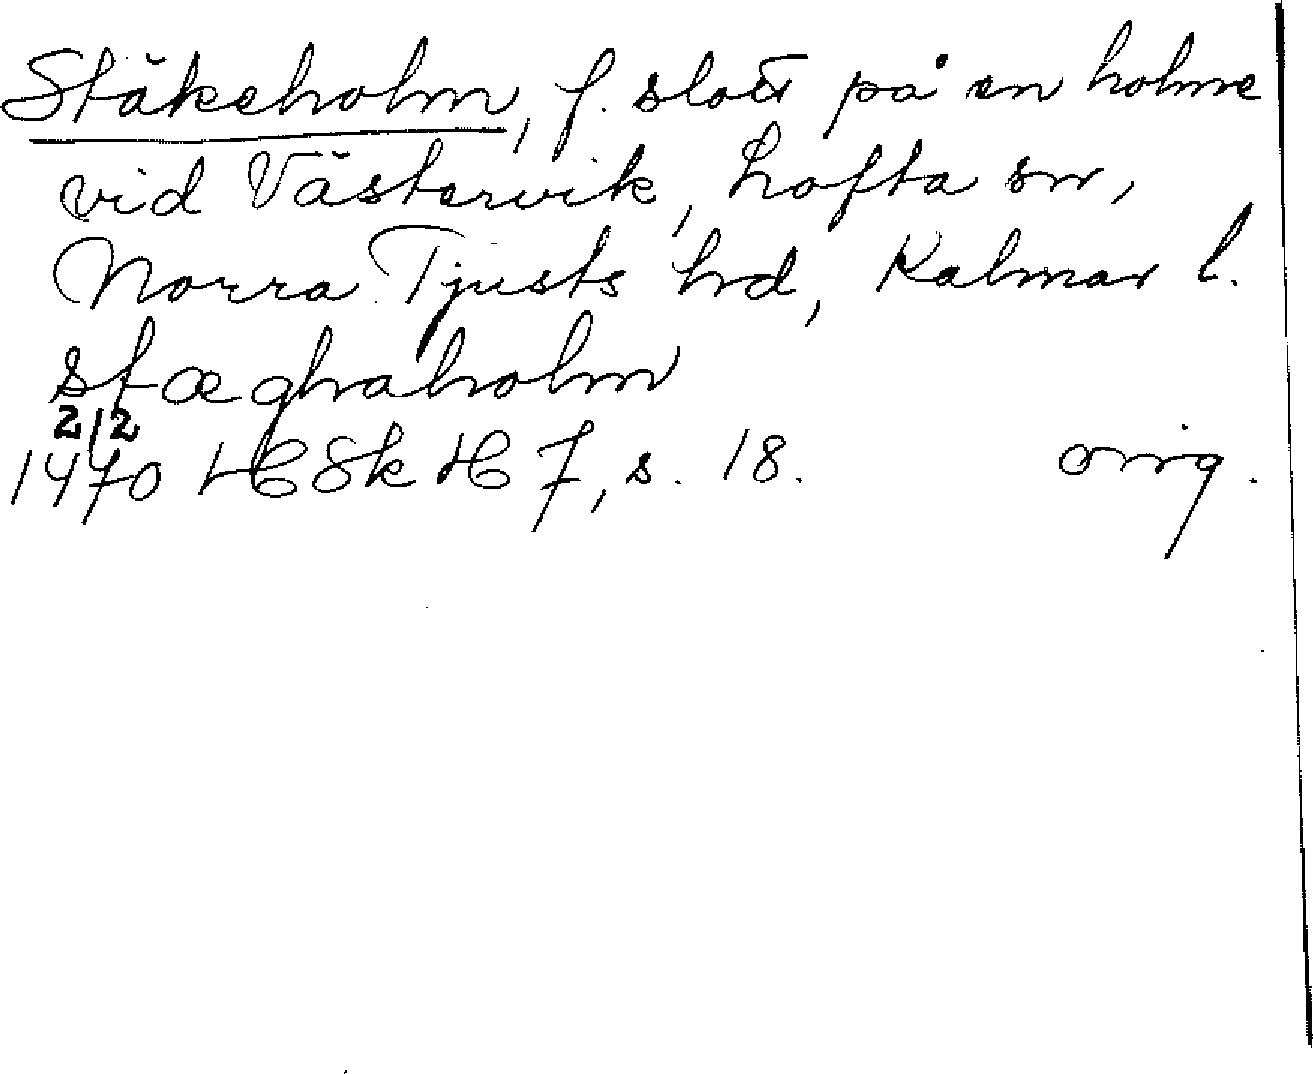 Stäkeholm, f. slott på en holme
vid Västervik, Lofta sn,
Norra Tjusts hd, Kalmar l.
stæghraholm
2/2
1470 HSkH 7, s. 18. orig.